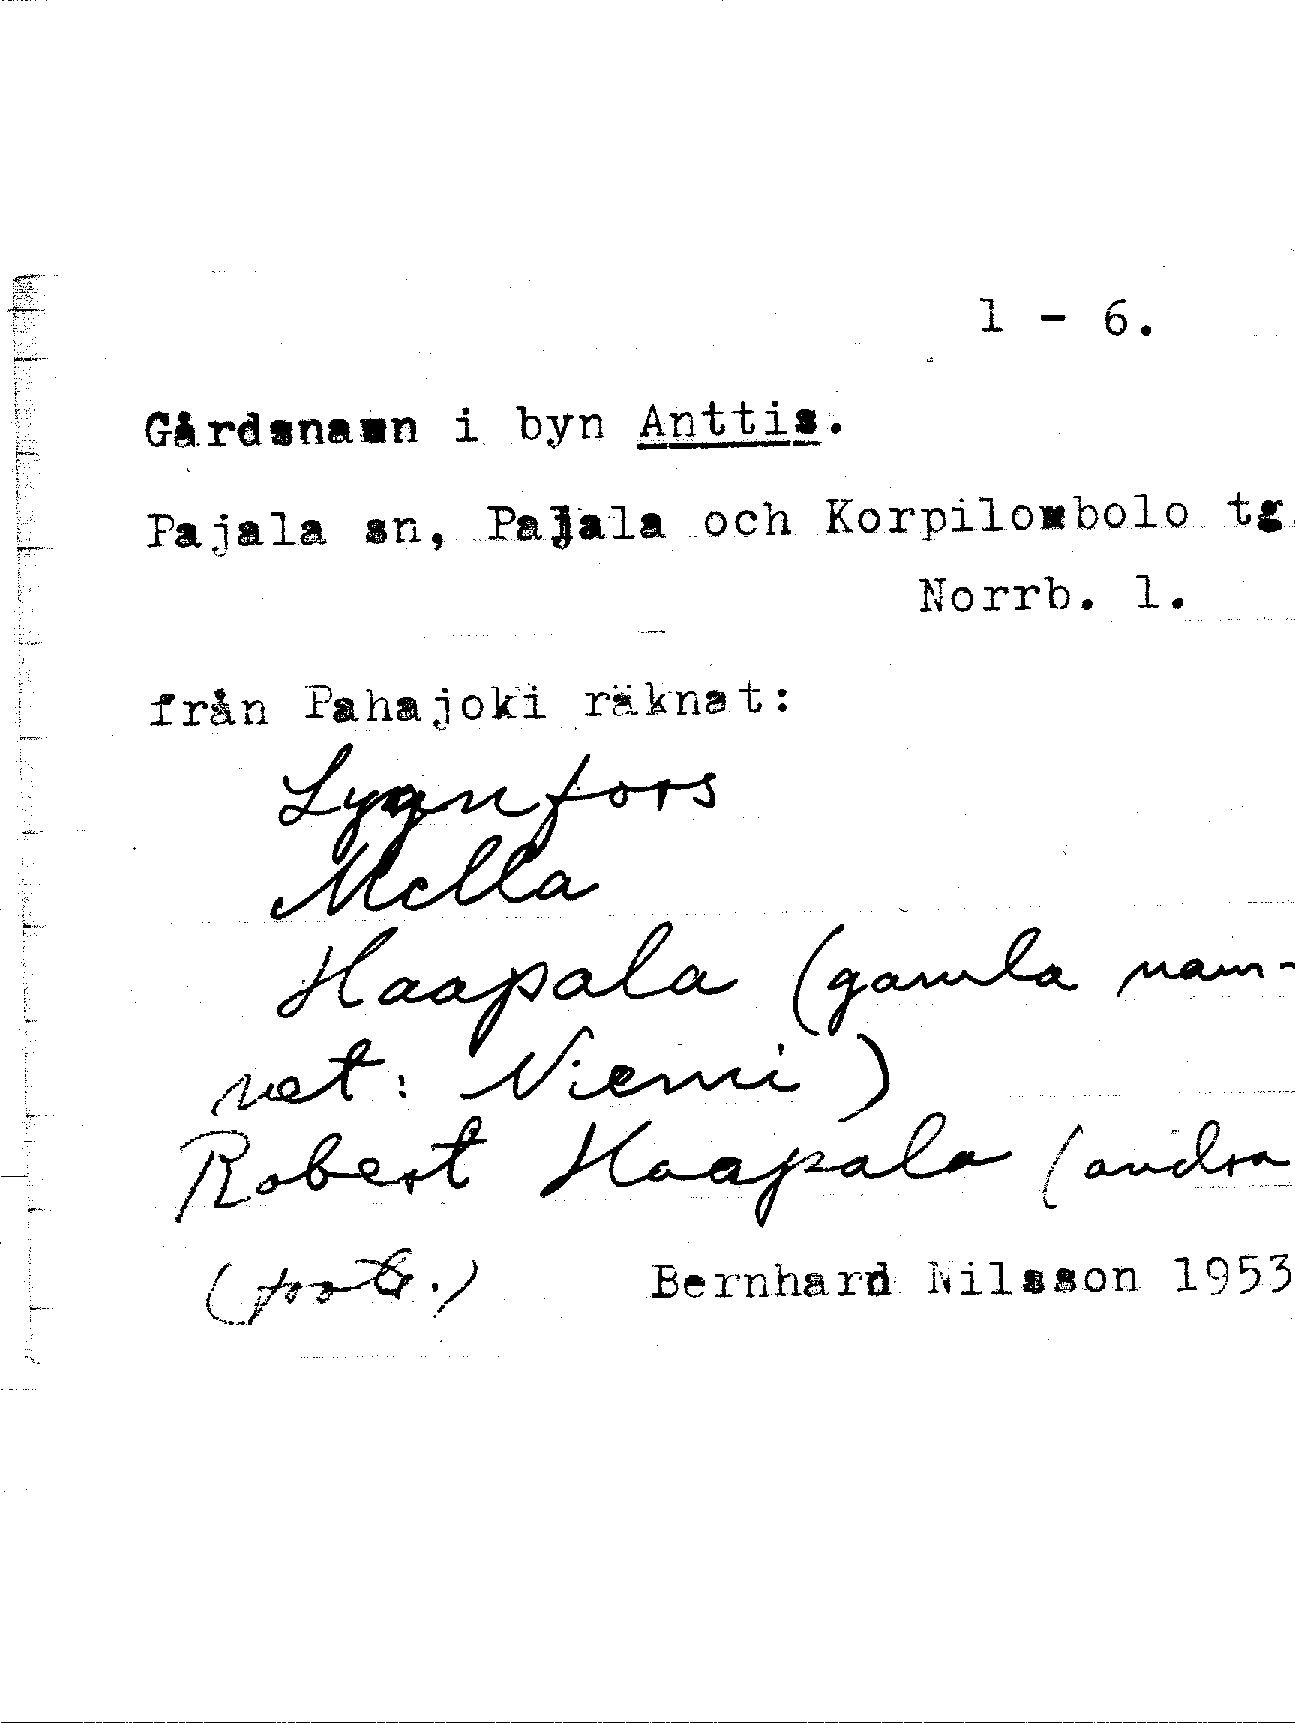 1 - 6.
Gårdsnamn i byn Anttis.
Pajala sn, Pajala och Korpilombolo tg
Norrb. l.
från Pahajoki räknat:
Lygnfors
Mella
Haapala (gamla nam-
net: Niemi)
Robert Haapala (andra
(forts.) Bernhard Nilsson 1953